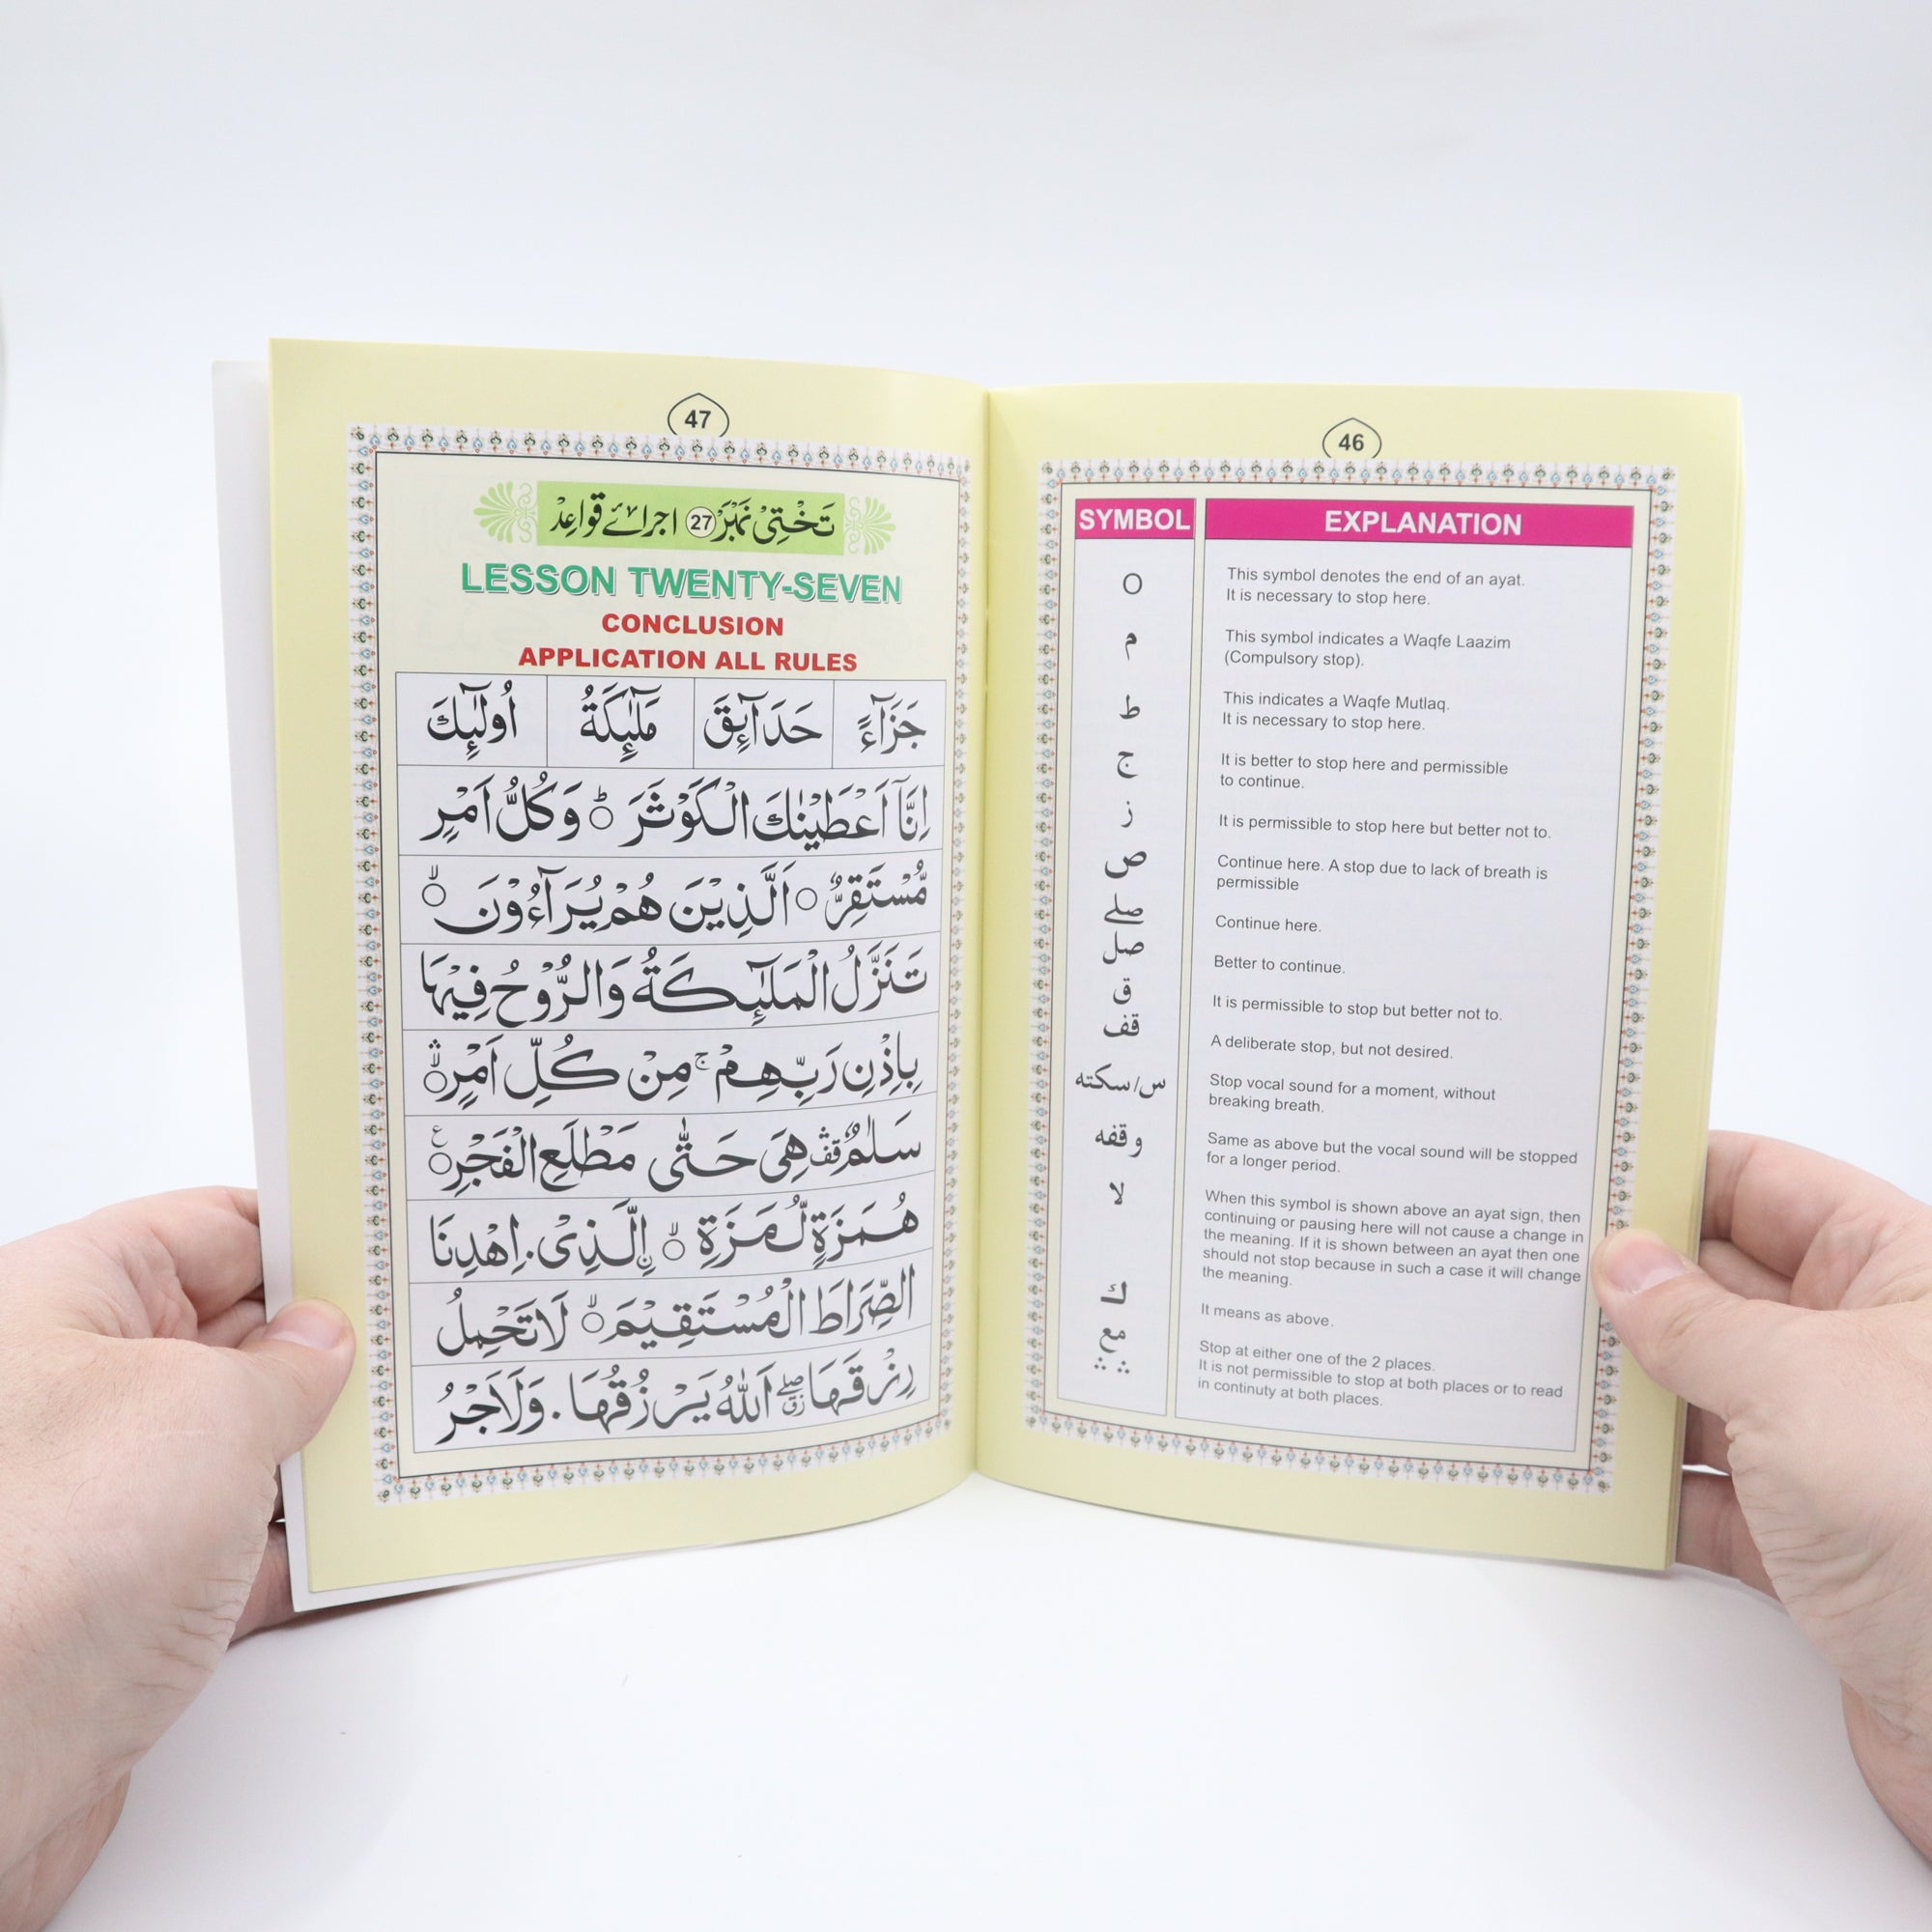 46
SYMBOL EXPLANATION
○ This symbol denotes the end of an ayat.
It is necessary to stop here.
م This symbol indicates a Waqfe Laazim
(Compulsory stop).
ط This indicates a Waqfe Mutlaq.
It is necessary to stop here.
ج It is better to stop here and permissible
to continue.
ز It is permissible to stop here but better not to.
ص Continue here. A stop due to lack of breath is
permissible
صلے Continue here.
صل Better to continue.
ق It is permissible to stop but better not to.
قف A deliberate stop, but not desired.
س/سکته Stop vocal sound for a moment, without
breaking breath.
وقفه Same as above but the vocal sound will be stopped
for a longer period.
لا When this symbol is shown above an ayat sign, then
continuing or pausing here will not cause a change in
the meaning. If it is shown between an ayat then one
should not stop because in such a case it will change
the meaning.
ك It means as above.
مع Stop at either one of the 2 places.
∴ ∴ It is not permissible to stop at both places or to read
in continuty at both places.
47
تَخْتِیْ نَمْبَرْ 27 اجرائے قواعِدْ
LESSON TWENTY-SEVEN
CONCLUSION
APPLICATION ALL RULES
جَزَآءً حَدَآئِقَ مَلٰٓئِكَةُ اُولٰٓئِكَ
اِنَّاۤ اَعْطَيْنٰكَ الْكَوْثَرَ ○ؕ وَكُلُّ اَمْرٍ
مُّسْتَقِرٌّ ○ اَلَّذِيْنَ هُمْ يُرَآءُوْنَ ○ۙ
تَنَزَّلُ الْمَلٰٓئِكَةُ وَالرُّوْحُ فِيْهَا
بِاِذْنِ رَبِّهِمْ ۚ مِنْ كُلِّ اَمْرٍ ○ۙۛ
سَلٰمٌ ۛقف هِىَ حَتّٰى مَطْلَعِ الْفَجْرِ ○ع
هُمَزَةٍ لُّمَزَةِ ○ۙ نِ الَّذِىْ . اِهْدِنَا
الصِّرَاطَ الْمُسْتَقِيْمَ ○ۙ لَا تَحْمِلُ
رِزْقَهَا صلے ز ق اَللّٰهُ يَرْزُقُهَا . وَلَاَجْرُ